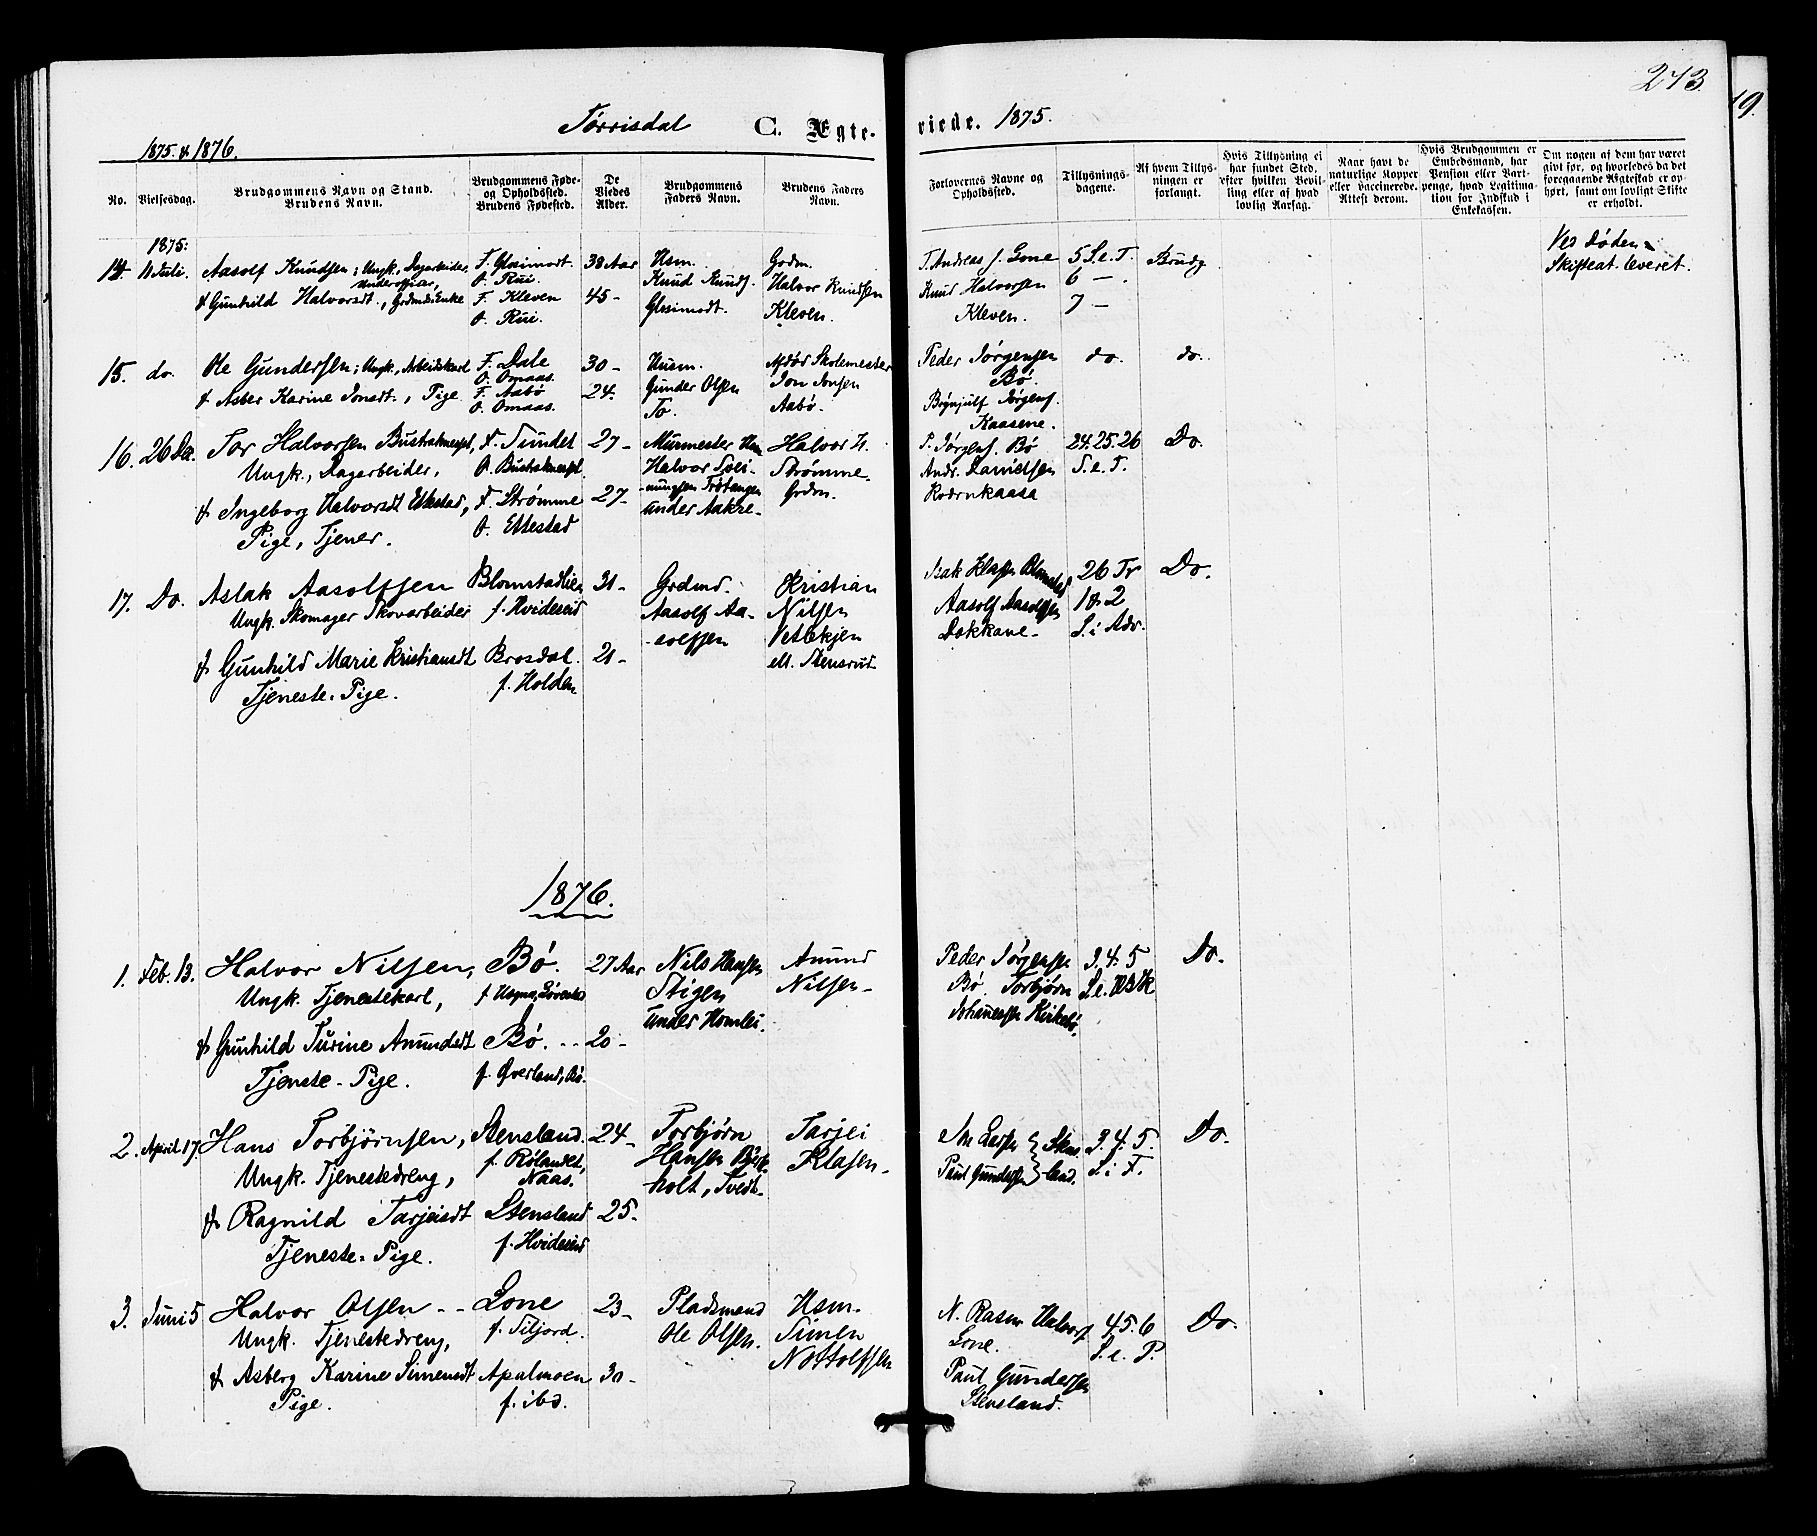 273.
19.
Törrisdal C. Ægteviede. 1875.
1875 & 1876.
No.
Vielsesdag.
Brudgommens Navn og Stand.
Brudens Navn.
Brudgommens Føde-
og Opholdssted.
Brudens Fødested.
De
Viedes
Alder.
Brudgommens
Faders Navn.
Brudens Faders
Navn.
Forlovernes Navne og
Opholdssted.
Tillysnings-
dagene.
Af hvem Tillys-
ningen er
forlangt.
Hvis Tillysning ei
har fundet Sted,
efter hvilken Bevil-
ling eller af hvad
lovlig Aarsag.
Naar havt de
naturlige Kopper
eller vaccinerede.
Attest derom.
Hvis Brudgommen er
Embedsmand, har
Pension eller Vart-
penge, hvad Legitima-
tion for Indskud i
Enkekassen.
Om nogen af dem har været
givt før, og hvorledes da det
foregaaende Ægteskab er op-
hørt, samt om lovligt Skifte
er erholdt.
1875:
14. 11 Juli.
Aasolf Knudsen; Ungk., Dagarbeider,
Underofficer,
& Gunhild Halvorsdt., Grdmds Enke
F. Glosimodt.
O. Rui.
F. Kleven
O. Rui.
38 Aar
45 -
Hsm.
Knud Knuds.
Glosimodt.
Grdm.
Halvor Knudsen
Kleven.
T. Andreas J. Gone
Knud Halvorsen
Kleven.
5 S. e. T.
6 —
7 —
Brudg
Ved Døden
Skifteat. leveret.
15. do.
Ole Gundersen; Ungk., Arbeidskarl
& Asber Karine Jonsdt., Pige
F. Dale
O. Omaas.
F. Aabø
O. Omaas.
30 -
24.
Husm.
Gunder Olsen
To.
Afdød Skolemester
Jon Jonsen
Aabø.
Peder Jørgensen
Bø.
Brynjulf Jörgens.
Kaasene.
do.
do.
16. 26 Dec.
Tor Halvorsen
Ungk., Dagarbeider,
& Ingeborg Halvorsdt Ettestad,
Pige, Tjener.
F. Sundet
F. Strømme
O. Ettestad
27 -
27 -
Murmester
Halvor Svei-
nungsen Trötangen
under Aakre -
Halvor H.
Strømme -
Grdm.
P. Jørgens. Bø
Andr. Danielsen
Kværnkaasa
24. 25. 26
S. e. T.
Do.
17. Do.
Aslak Aasolfsen
Ungk. Skomager Skovarbeider
& Gunhild Marie Kristiansdt
Tjeneste-Pige.
Blomstadlien
f. Hvideseid
Brosdal.
f. Holden
31 -
21 -
Grdmd.
Aasolf Aa-
-solfsen
Kristian
Nilsen
Vetlekjen
ell. Stensrud
Isak Klasen Blomstad
Aasolf Aasolfsen
Dokkane -
26 Tr
1 & 2
S. i Adv.
Do.
1876.
1. Feb. 13.
Halvor Nilsen,
Ungk. Tjenestekarl,
& Gunhild Turine Amundsdt
Tjeneste-Pige.
Bø.
Bø. --
f. Øverland, Bø.
27 Aar
20 -
Nils Hansen
Stigen
under Homlei.
Amund
Nilsen -
Peder Jørgensen
Bø. Torbjørn
Johannessen Kirkebø,
3. 4. 5
S. e. H3K
Do.
2. April 17.
Hans Torbjørnsen,
Ungk. Tjenestedreng,
& Ragnild Tarjeisdt
Tjeneste-Pige.
Stensland.
f. Rølandet,
Naas.
Stensland
f. Hvideseid
24 -
25.
Torbjørn
Hansen Bjerk-
holt, Tvedt.
Tarjei
Klasen -
Paul Gundersen
Stensland.
3. 4. 5.
S. i F.
Do.
3. Juni 5
Halvor Olsen --
Ungk. Tjenestedreng,
& Asberg Karine Simensdt
Pige.
Lone
f. Siljord.
Apalmoen
f. ibd.
23 -
30 -
Pladsmand
Ole Olsen.
Hsm.
Simen
Nottolfsen
N. Rasm Halvors
Lone.
Paul Gundersen
Stensland.
4 5. 6
S. e. P.
Do.